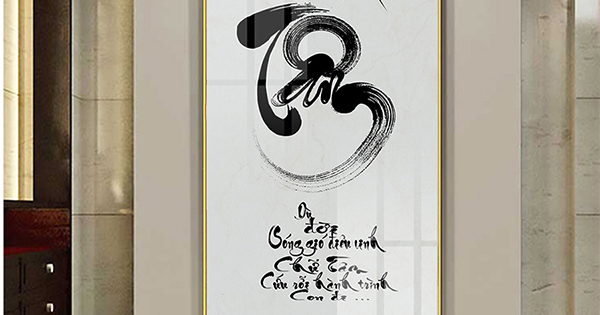 Tâm
Dù
đời
Sóng gió điêu linh
Chữ Tâm
Cứu rỗi hành trình
Con đi ...